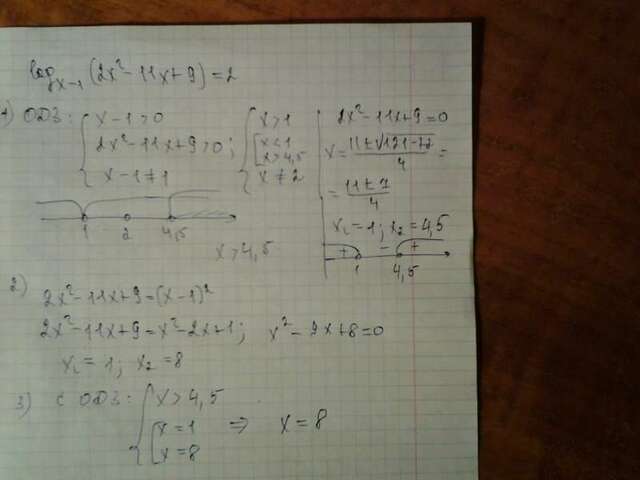 log_{x-1} (2x² - 11x + 9) = 2
1) ОДЗ: { x - 1 > 0
2x² - 11x + 9 > 0;
x - 1 ≠ 1
{ x > 1
[ x < 1
x > 4,5
x ≠ 2
2x² - 11x + 9 = 0
x = (11 ± √(121 - 72)) / 4 =
= (11 ± 7) / 4
x₁ = 1; x₂ = 4,5
+ - +
1 4,5
1 2 4,5
x > 4,5
2)
2x² - 11x + 9 = (x - 1)²
2x² - 11x + 9 = x² - 2x + 1; x² - 9x + 8 = 0
x₁ = 1; x₂ = 8
3) С ОДЗ: { x > 4,5
[ x = 1 ⇒ x = 8
x = 8